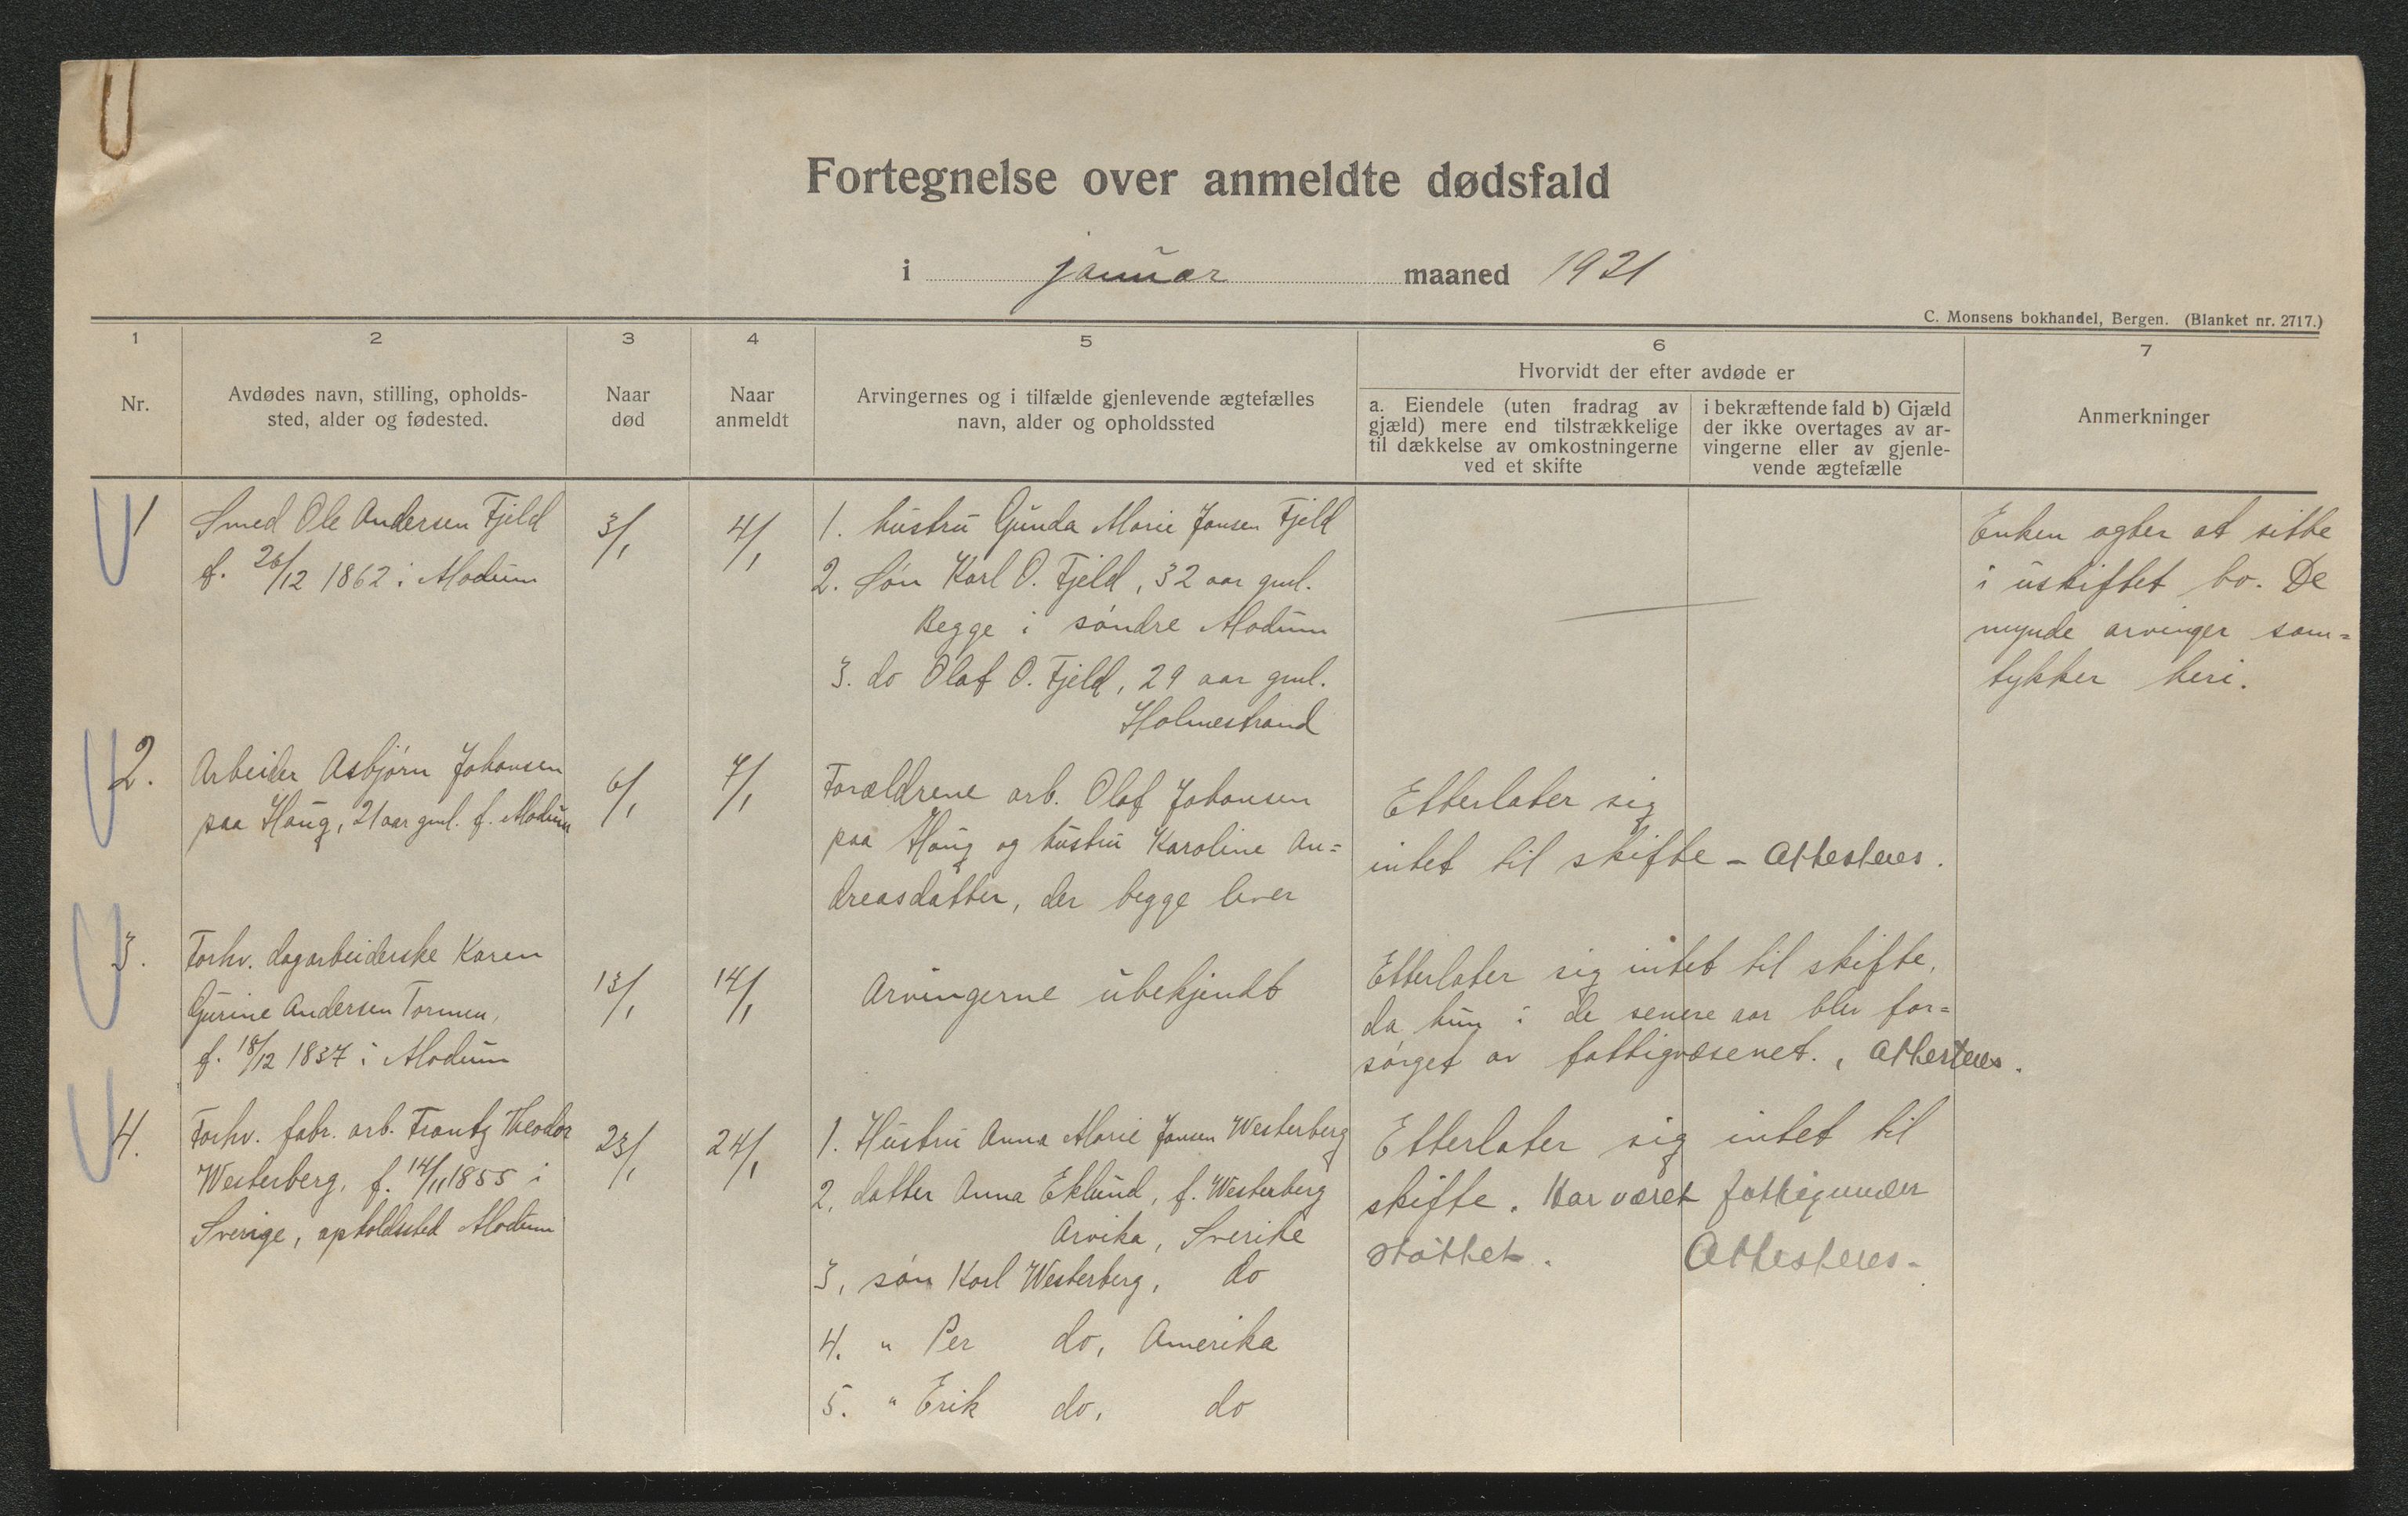 Fortegnelse over anmeldte dødsfald
i januar maaned 1921
C. Monsens bokhandel, Bergen. (Blanket nr. 2717.)
1
2
3
4
5
6
7
Nr.
Avdødes navn, stilling, opholds-
sted, alder og fødested.
Naar
død
Naar
anmeldt
Arvingernes og i tilfælde gjenlevende ægtefælles
navn, alder og opholdssted
Hvorvidt der efter avdøde er
a. Eiendele (uten fradrag av
gjæld) mere end tilstrækkelige
til dækkelse av omkostningerne
ved et skifte
i bekræftende fald b) Gjæld
der ikke overtages av ar-
vingerne eller av gjenle-
vende ægtefælle
Anmerkninger
1
Smed Ole Andersen Fjeld
f. 26/12 1862 i Modum
3/1
4/1
1. hustru Gunda Marie Jansen Fjeld
2. Søn Karl O. Fjeld, 32 aar gml.
Begge i søndre Modum
3. do Olaf O. Fjeld, 29 aar gml.
Holmestrand
Enken agter at sitte
i uskiftet bo. De
mynde arvinger sam=
tykker heri.
2.
Arbeider Asbjørn Johansen
paa Haug, 21 aar gml. f. Modum
6/1
7/1
Forældrene arb. Olaf Johansen
paa Haug og hustru Karoline An=
dreasdatter, der begge lever
Etterlater sig
intet til skifte – Attesteres.
3.
Forhv. dagarbeiderske Karen
Gurine Andersen Tormen,
f. 18/12 1837 i Modum
13/1
14/1
Arvingerne ubekjendt
Etterlater sig intet til skifte,
da hun i de senere aar blev for=
sørget av fattigvæsenet. Attesteres.
4.
Forhv. fabr. arb. Frantz Theodor
Westerberg, f. 14/11 1855 i
Sverige, opholdssted Modum
23/1
24/1
1. Hustru Anna Marie Jansen Westerberg
2, datter Anna Eklund, f. Westerberg
Arvika, Sverike
3, søn Karl Westerberg, do
4. " Per do, Amerika
5. " Erik do, do
Etterlater sig intet til
skifte. Har været fattigunder
støttet. Attesteres.